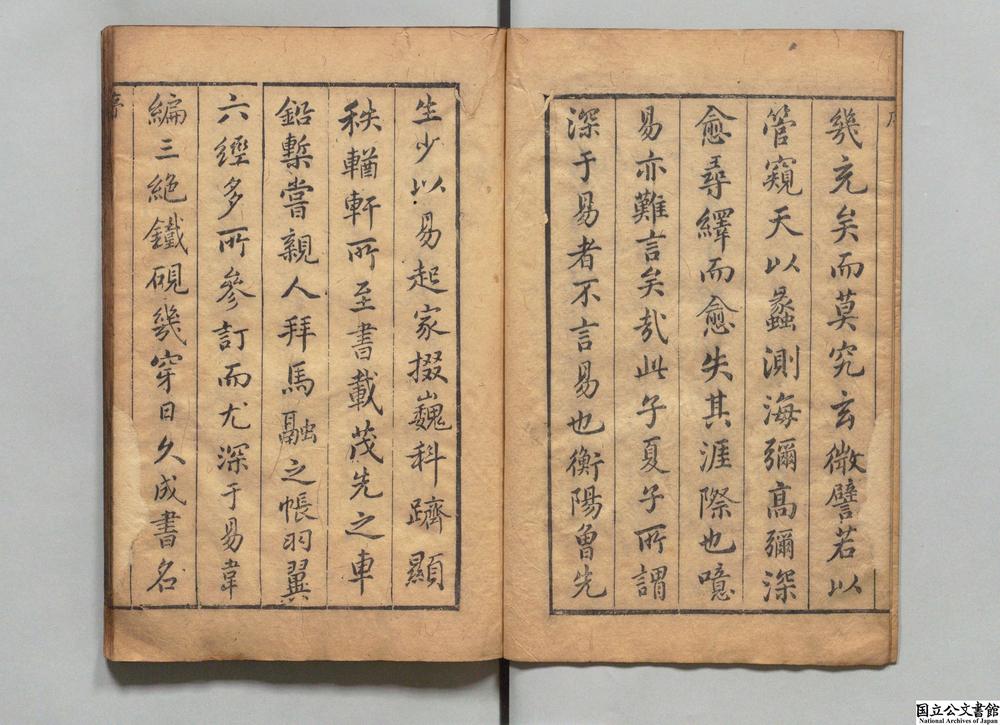 幾充矣而莫究玄微譬若以
管窺天以蠡測海彌高彌深
愈尋繹而愈失其涯際也噫
易亦難言矣哉此子夏子所謂
深于易者不言易也衡陽曾先
生少以易起家掇巍科躋顯
秩輶軒所至書載茂先之車
鉛槧嘗親人拜馬融之帳羽翼
六經多所參訂而尤深于易韋
編三絕鐵硯幾穿日久成書名
序
国立公文書館
National Archives of Japan